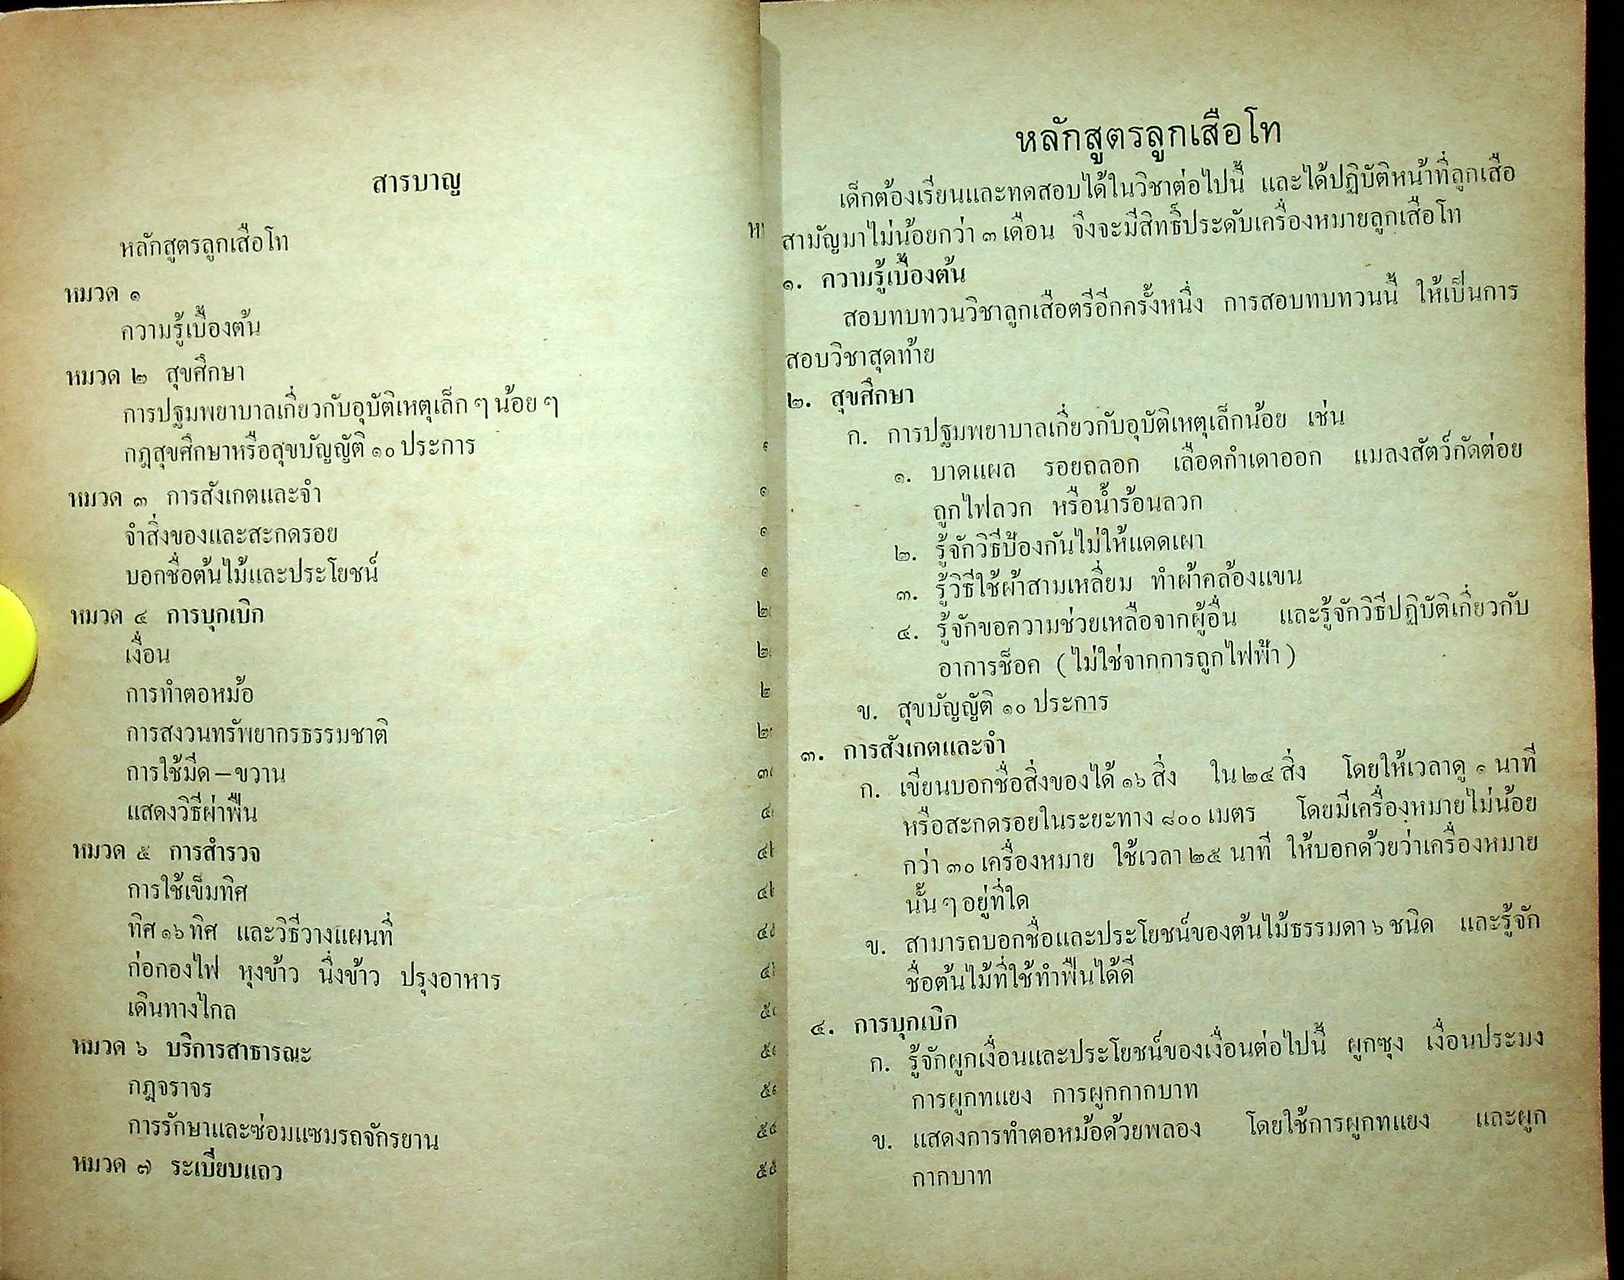 สารบาญ
หลักสูตรลูกเสือโท
หมวด ๑
ความรู้เบื้องต้น
หมวด ๒ สุขศึกษา
การปฐมพยาบาลเกี่ยวกับอุบัติเหตุเล็ก ๆ น้อย ๆ
กฎสุขศึกษาหรือสุขบัญญัติ ๑๐ ประการ
หมวด ๓ การสังเกตและจำ
จำสิ่งของและสะกดรอย
บอกชื่อต้นไม้และประโยชน์
หมวด ๔ การบุกเบิก
เงื่อน
การทำตอหม้อ
การสงวนทรัพยากรธรรมชาติ
การใช้มีด – ขวาน
แสดงวิธีผ่าฟืน
หมวด ๕ การสำรวจ
การใช้เข็มทิศ
ทิศ ๑๖ ทิศ และวิธีวางแผนที่
ก่อกองไฟ หุงข้าว นึ่งข้าว ปรุงอาหาร
เดินทางไกล
หมวด ๖ บริการสาธารณะ
กฎจราจร
การรักษาและซ่อมแซมรถจักรยาน
หมวด ๗ ระเบียบแถว
หลักสูตรลูกเสือโท
เด็กต้องเรียนและทดสอบได้ในวิชาต่อไปนี้ และได้ปฏิบัติหน้าที่ลูกเสือ
สามัญมาไม่น้อยกว่า ๓ เดือน จึงจะมีสิทธิ์ประดับเครื่องหมายลูกเสือโท
๑. ความรู้เบื้องต้น
สอบทบทวนวิชาลูกเสือตรีอีกครั้งหนึ่ง การสอบทบทวนนี้ ให้เป็นการ
สอบวิชาสุดท้าย
๒. สุขศึกษา
ก. การปฐมพยาบาลเกี่ยวกับอุบัติเหตุเล็กน้อย เช่น
๑. บาดแผล รอยถลอก เลือดกำเดาออก แมลงสัตว์กัดต่อย
ถูกไฟลวก หรือน้ำร้อนลวก
๒. รู้จักวิธีป้องกันไม่ให้แดดเผา
๓. รู้วิธีใช้ผ้าสามเหลี่ยม ทำผ้าคล้องแขน
๔. รู้จักขอความช่วยเหลือจากผู้อื่น และรู้จักวิธีปฏิบัติเกี่ยวกับ
อาการช็อค (ไม่ใช่จากการถูกไฟฟ้า)
ข. สุขบัญญัติ ๑๐ ประการ
๓. การสังเกตและจำ
ก. เขียนบอกชื่อสิ่งของได้ ๑๖ สิ่ง ใน ๒๔ สิ่ง โดยให้เวลาดู ๑ นาที
หรือสะกดรอยในระยะทาง ๘๐๐ เมตร โดยมีเครื่องหมายไม่น้อย
กว่า ๓๐ เครื่องหมาย ใช้เวลา ๒๕ นาที ให้บอกด้วยว่าเครื่องหมาย
นั้น ๆ อยู่ที่ใด
ข. สามารถบอกชื่อและประโยชน์ของต้นไม้ธรรมดา ๖ ชนิด และรู้จัก
ชื่อต้นไม้ที่ใช้ทำฟืนได้ดี
๔. การบุกเบิก
ก. รู้จักผูกเงื่อนและประโยชน์ของเงื่อนต่อไปนี้ ผูกซุง เงื่อนประมง
การผูกทแยง การผูกกากบาท
ข. แสดงการทำตอหม้อด้วยพลอง โดยใช้การผูกทแยง และผูก
กากบาท